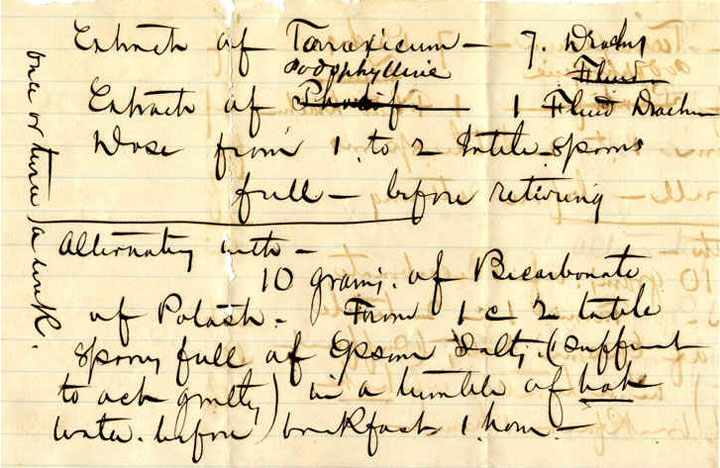 Extract of Taraxicum – 7. Drachms
podophylline Fluid
Extract of 1 Fluid Drachm
Dose from 1 to 2 table-spoons
full – before retiring
once or twice a week.
Alternating with –
10 grains. of Bicarbonate
of Potash – From 1 2 table
spoons full of Epsom Salts. (sufficient
to act gently) in a tumbler of hot
water. before breakfast 1. hour –